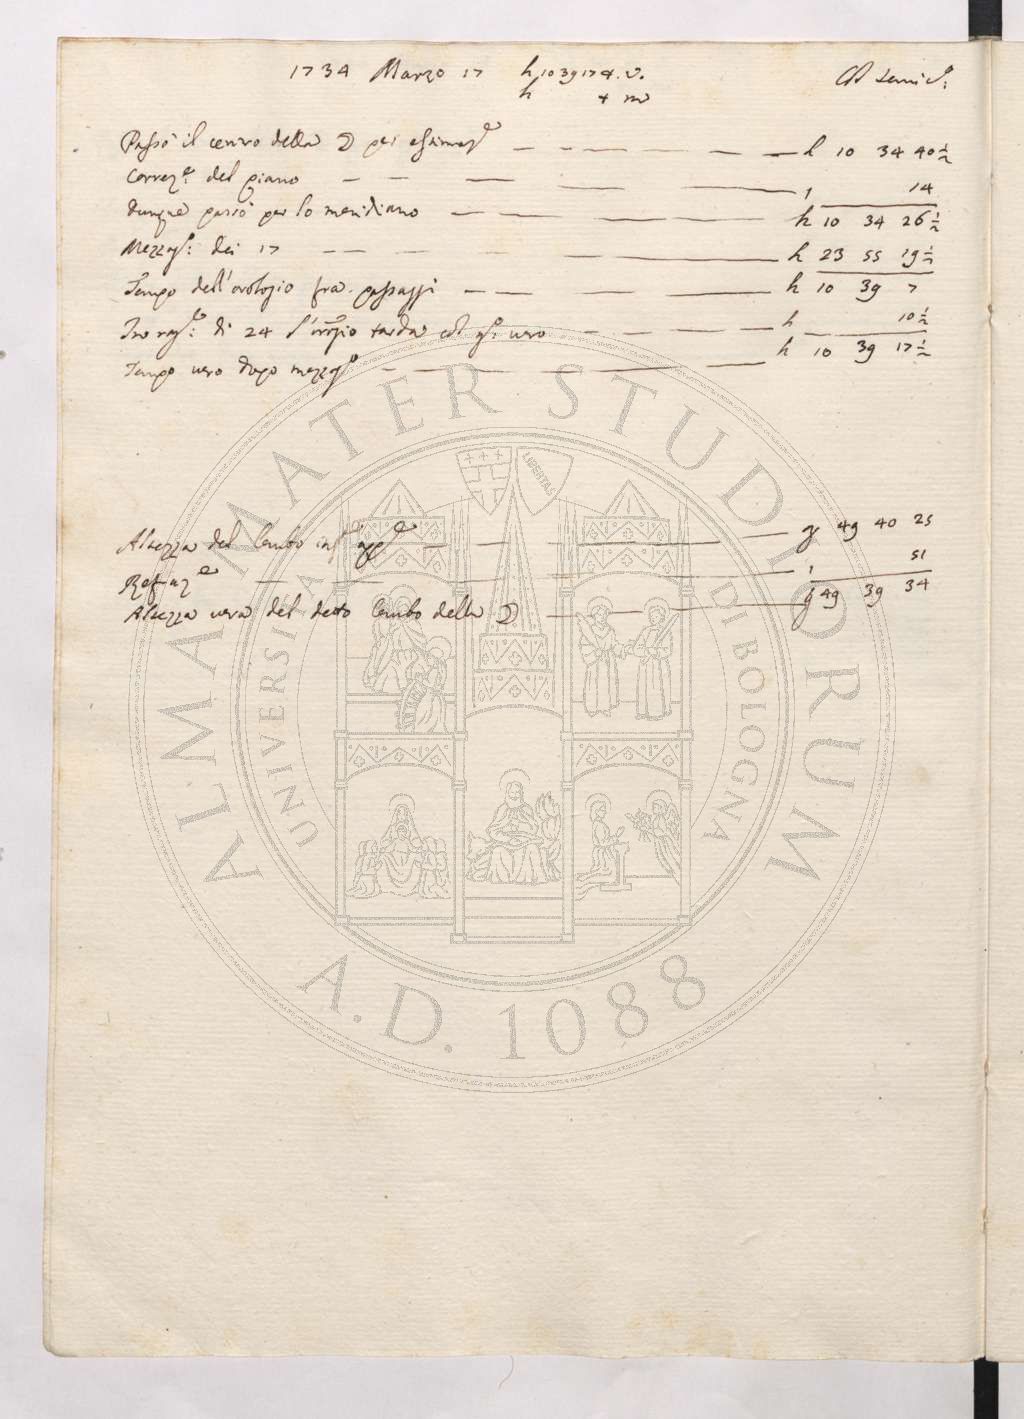 1734 Marzo 17 h 10 39 17 t. v.
h t m
Al Semic:
Passò il centro della ☽ per estimaz.e h 10 34 40 1/2
Correz.e del piano 14
dunque passò per lo meridiano h 10 34 26 1/2
Mezzog.: dei 17 h 23 55 19 1/2
Tempo dell'orologio fra passaggi h 10 39 7
In rag.e: di 24 l'orogio tarda al g.: vero h 10 1/2
Tempo vero dopo mezzg.o h 10 39 17 1/2
Altezza del lembo inf. app.e g 49 40 25
Refraz.e 51
Altezza vera del detto lembo della ☽ g 49 39 34
ALMA MATER STUDIORUM
UNIVERSITÀ DI BOLOGNA
LIBERTAS
A.D. 1088